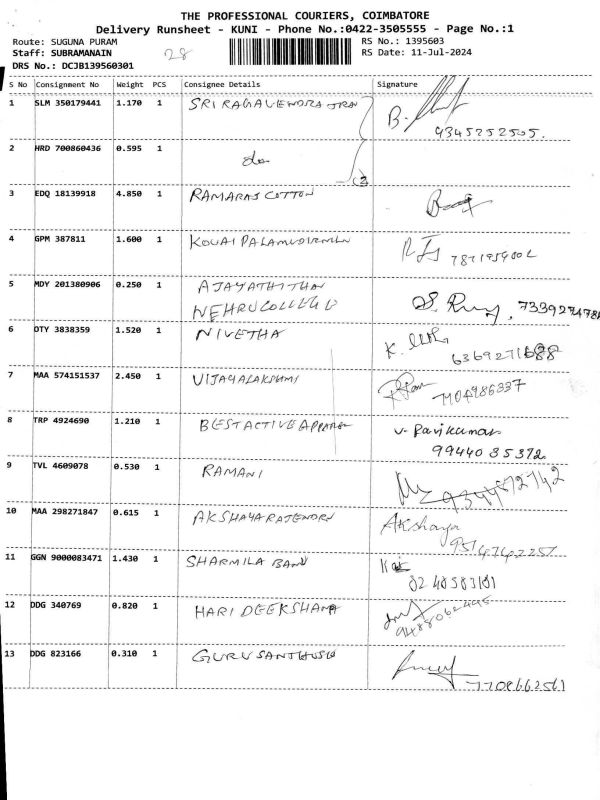 THE PROFESSIONAL COURIERS, COIMBATORE
Delivery Runsheet - KUNI - Phone No.:0422-3505555 - Page No.:1
Route: SUGUNA PURAM
RS No.: 1395603
Staff: SUBRAMANAIN 28
RS Date: 11-Jul-2024
DRS No.: DCJB139560301
S No Consignment No Weight PCS Consignee Details Signature
1 SLM 350179441 1.170 1 SRI RAGAVENDRA B.
9345252505.
2 HRD 700860436 0.595 1 do 2
3 EDQ 18139918 4.850 1 RAMARAJ COTTON
4 GPM 387811 1.600 1 KOVAI
5 MDY 201380906 0.250 1 AJAYATHITHAN
NEHRU COLLEGE S.
6 OTY 3838359 1.520 1 NIVETHA K.
7 MAA 574151537 2.450 1 VIJAYALAKSHMI
8 TRP 4924690 1.210 1 BEST ACTIVE APPAREL V. Ravikumar
99440 35372
9 TVL 4609078 0.530 1 RAMANI
10 MAA 298271847 0.615 1 AKSHAYA RAJENDRN AKshaya
9514742251
11 GGN 9000083471 1.430 1 SHARMILA BANU
82 48583181
12 DDG 340769 0.820 1 HARI DEEKSHANA
13 DDG 823166 0.310 1 GURU SANTHOSH
7708662561